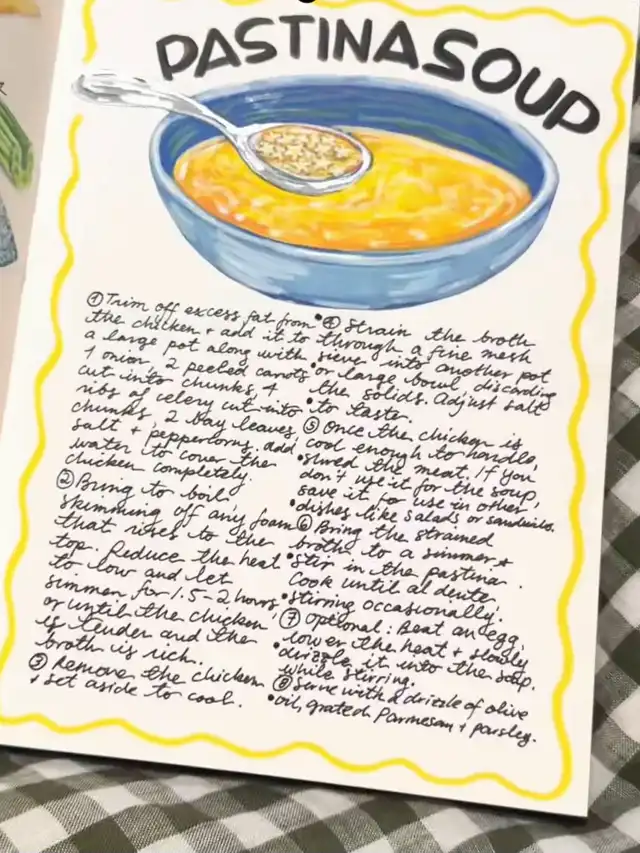 PASTINA SOUP
① Trim off excess fat from
the chicken + add it to
a large pot along with
1 onion, 2 peeled carrots
cut into chunks, 4
ribs of celery cut into
chunks, 2 bay leaves,
salt + peppercorns. add
water to cover the
chicken completely.
② Bring to boil
skimming off any foam
that rises to the
top. Reduce the heat
to low and let
simmer for 1.5-2 hours,
or until the chicken
is tender and the
broth is rich.
③ Remove the chicken
+ set aside to cool.
• ④ Strain the broth
through a fine mesh
sieve into another pot
• or large bowl, discarding
the solids. Adjust salt
• to taste.
⑤ Once the chicken is
cool enough to handle,
• shred the meat. If you
don't use it for the soup,
save it for use in other
• dishes like salads or sandwiches.
⑥ Bring the strained
broth to a simmer +
• stir in the pastina.
Cook until al dente,
• stirring occasionally.
⑦ Optional: Beat an egg,
lower the heat + slowly
• drizzle it into the soup.
while stirring.
⑧ Serve with a drizzle of olive
• oil, grated Parmesan + parsley.